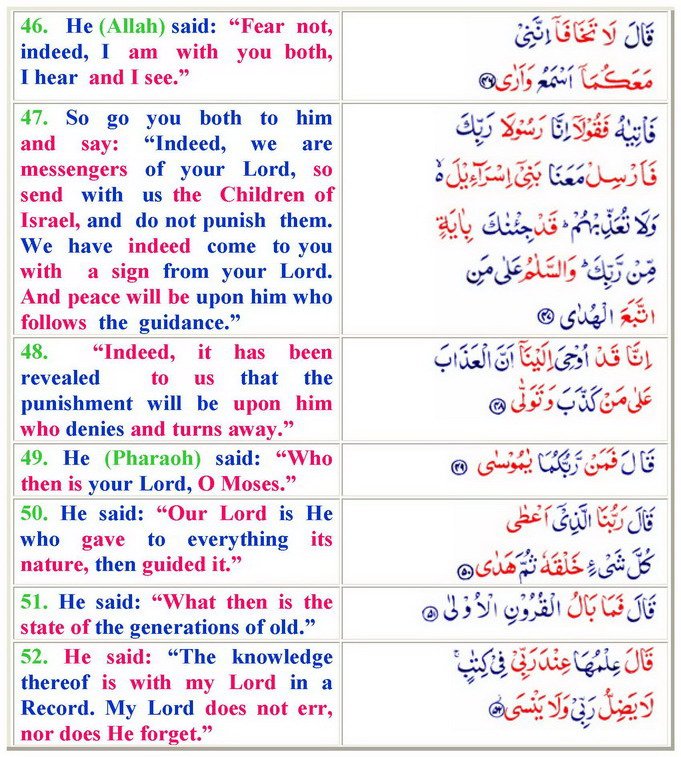 46. He (Allah) said: “Fear not,
indeed, I am with you both,
I hear and I see.”
قَالَ لَا تَخَافَآ اِنَّنِيْ
مَعَكُمَآ اَسْمَعُ وَاَرٰى ۝۴۶
47. So go you both to him
and say: “Indeed, we are
messengers of your Lord, so
send with us the Children of
Israel, and do not punish them.
We have indeed come to you
with a sign from your Lord.
And peace will be upon him who
follows the guidance.”
فَاْتِيٰهُ فَقُوْلَآ اِنَّا رَسُوْلَا رَبِّكَ
فَاَرْسِلْ مَعَنَا بَنِيْٓ اِسْرَآءِيْلَ ۙ
وَلَا تُعَذِّبْهُمْ ؕ قَدْ جِئْنٰكَ بِاٰيَةٍ
مِّنْ رَّبِّكَ ؕ وَالسَّلٰمُ عَلٰى مَنِ
اتَّبَعَ الْهُدٰى ۝۴۷
48. “Indeed, it has been
revealed to us that the
punishment will be upon him
who denies and turns away.”
اِنَّا قَدْ اُوْحِيَ اِلَيْنَآ اَنَّ الْعَذَابَ
عَلٰى مَنْ كَذَّبَ وَتَوَلّٰى ۝۴۸
49. He (Pharaoh) said: “Who
then is your Lord, O Moses.”
قَالَ فَمَنْ رَّبُّكُمَا يٰمُوْسٰى ۝۴۹
50. He said: “Our Lord is He
who gave to everything its
nature, then guided it.”
قَالَ رَبُّنَا الَّذِيْٓ اَعْطٰى
كُلَّ شَيْءٍ خَلْقَهٗ ثُمَّ هَدٰى ۝۵۰
51. He said: “What then is the
state of the generations of old.”
قَالَ فَمَا بَالُ الْقُرُوْنِ الْاُوْلٰى ۝۵۱
52. He said: “The knowledge
thereof is with my Lord in a
Record. My Lord does not err,
nor does He forget.”
قَالَ عِلْمُهَا عِنْدَ رَبِّيْ فِيْ كِتٰبٍ ۚ
لَا يَضِلُّ رَبِّيْ وَلَا يَنْسَى ۝۵۲